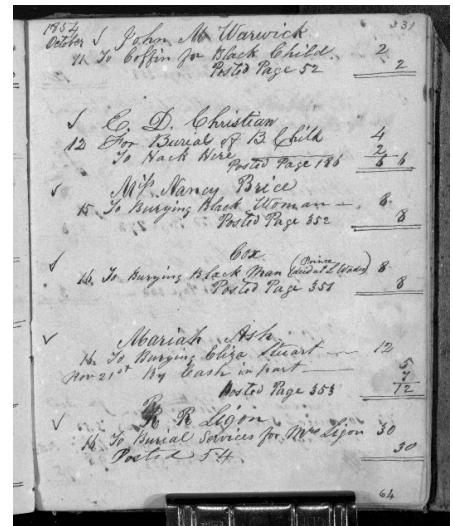 1854 331
October √ John M Warwick
11 To Coffin for Black Child 2
Posted Page 52 2
√ E. D. Christian
12 For Burial of B. Child 4
To Hack Hire 2
Posted Page 186 6 6
√ Miss Nancy Brice
15 To Burying Black Woman — 8
Posted Page 352 8
√ Cox
14 To Burying Black Man (Prince died at L Wades) 8
Posted Page 351 8
√ Mariah Ash
14 To Burying Eliza Stuart — 12
Nov 21st By Cash in part — 5
7
Posted Page 353 12
√ R R Ligon
14 To Burial Services for Mrs Ligon 30
Posted 54 30
64